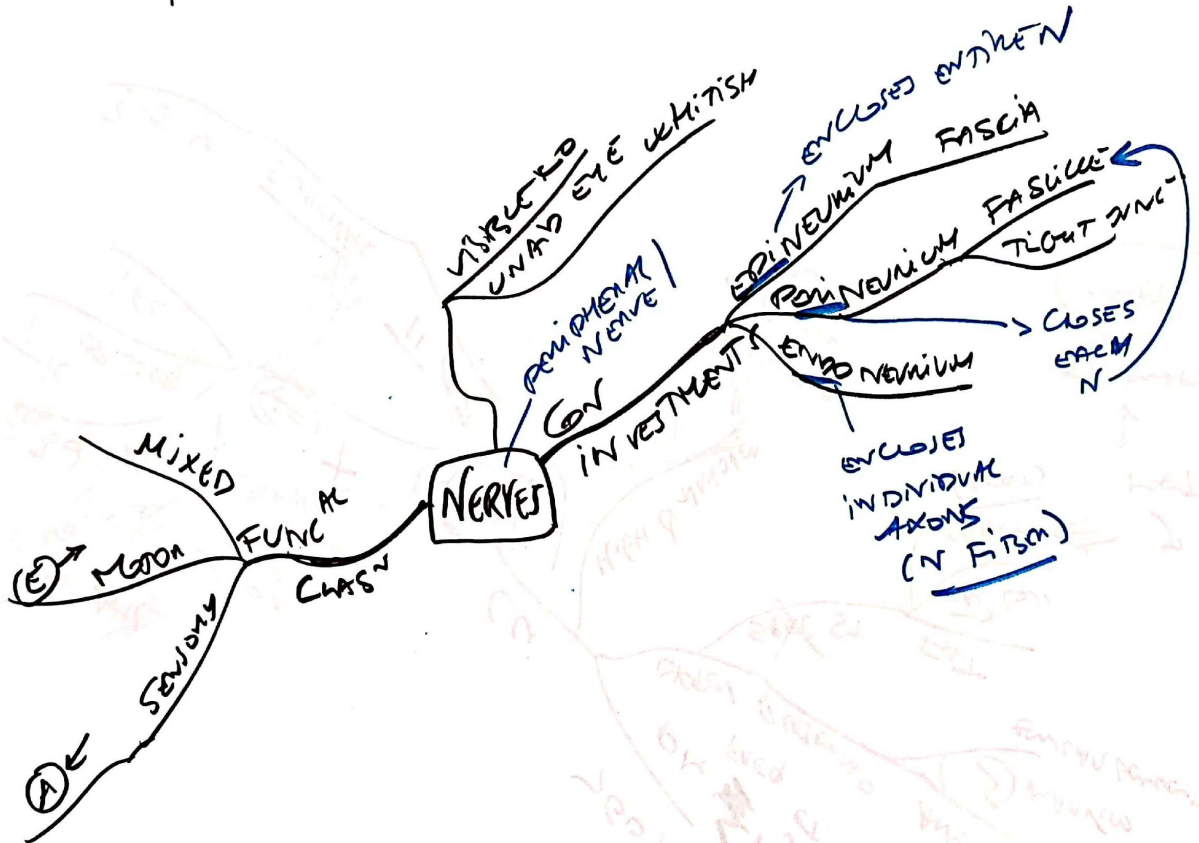 NERVES
PERIPHERAL
NERVE
VISIBLE TO
UNAID EYE WHITISH
CON
INVESTMENTS
EPINEURIUM FASCIA
ENCLOSES ENTIRE N
PERINEURIUM FASCICLE
TIGHT JUNC
CLOSES
EACH
N
ENDONEURIUM
ENCLOSES
INDIVIDUAL
AXONS
(N FIBER)
FUNCAL
CLASN
MIXED
MOTOR
E
SENSORY
A